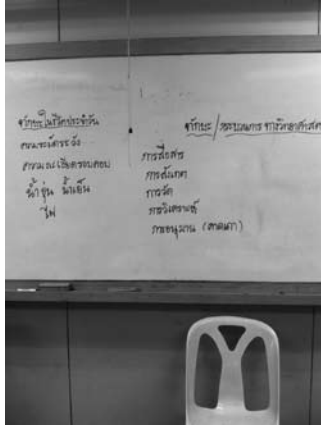 ทักษะในชีวิตประจำวัน
ความระมัดระวัง
ความละเอียดรอบคอบ
น้ำอุ่น น้ำเย็น
ไฟ
ทักษะ/กระบวนการทางวิทยาศาสตร์
การสื่อสาร
การสังเกต
การวัด
การวิเคราะห์
การอนุมาน (คาดเดา)